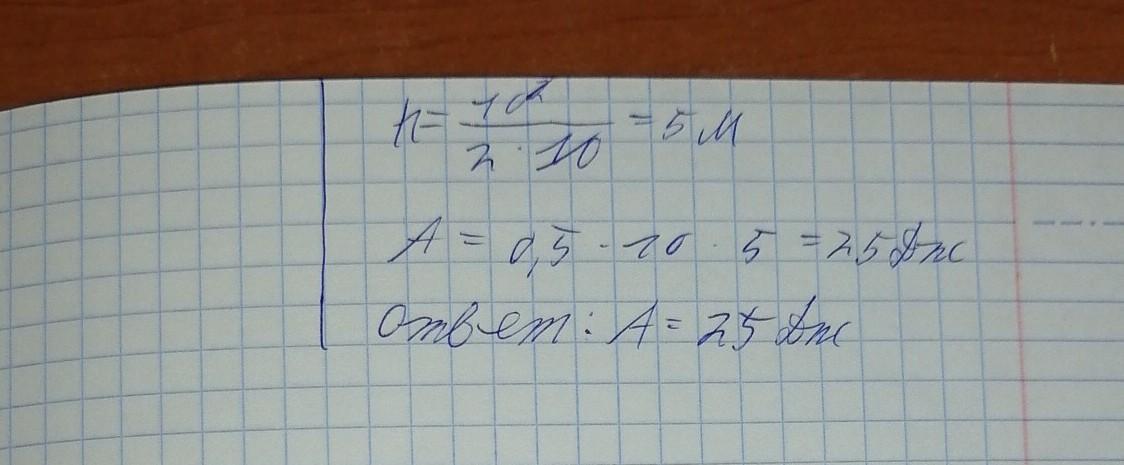 h = 10² / 2 · 10 = 5 м
A = 0,5 · 10 · 5 = 25 Дж
Ответ: A = 25 Дж